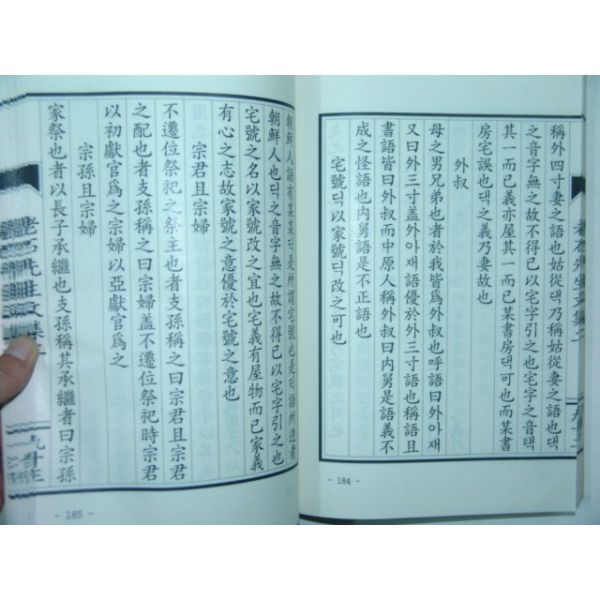 稱外四寸妻之語也姑從댁乃稱姑從妻之語也댁
之音字無之故不得已以宅字引之也宅字之音댁
其一而已義亦屋其一而已某書房댁可也而某書
房宅誤也댁之義乃妻故也
外叔
母之男兄弟也者於我皆爲外叔也呼語曰外아재
又曰外三寸盖外아재語優於外三寸語也稱語且
書語皆曰外叔而中原人稱外叔曰內舅是語義不
成之怪語也內舅語是不正語也
宅號딕以家號딕改之可也
- 184 -
朝鮮人語有某某딕是所謂宅號也是딕語所道者
朝鮮人也딕之音字無之故不得已以宅字引之也
宅號之名以家號改之宜也宅義有屋物而已家義
有心之志故家號之意優於宅號之意也
宗君且宗婦
不遷位祭祀之祭主也者支孫稱之曰宗君且宗君
之配也者支孫稱之曰宗婦盖不遷位祭祀時宗君
以初獻官爲之宗婦以亞獻官爲之
宗孫且宗婦
家祭也者以長子承繼也支孫稱其承繼者曰宗孫
- 185 -